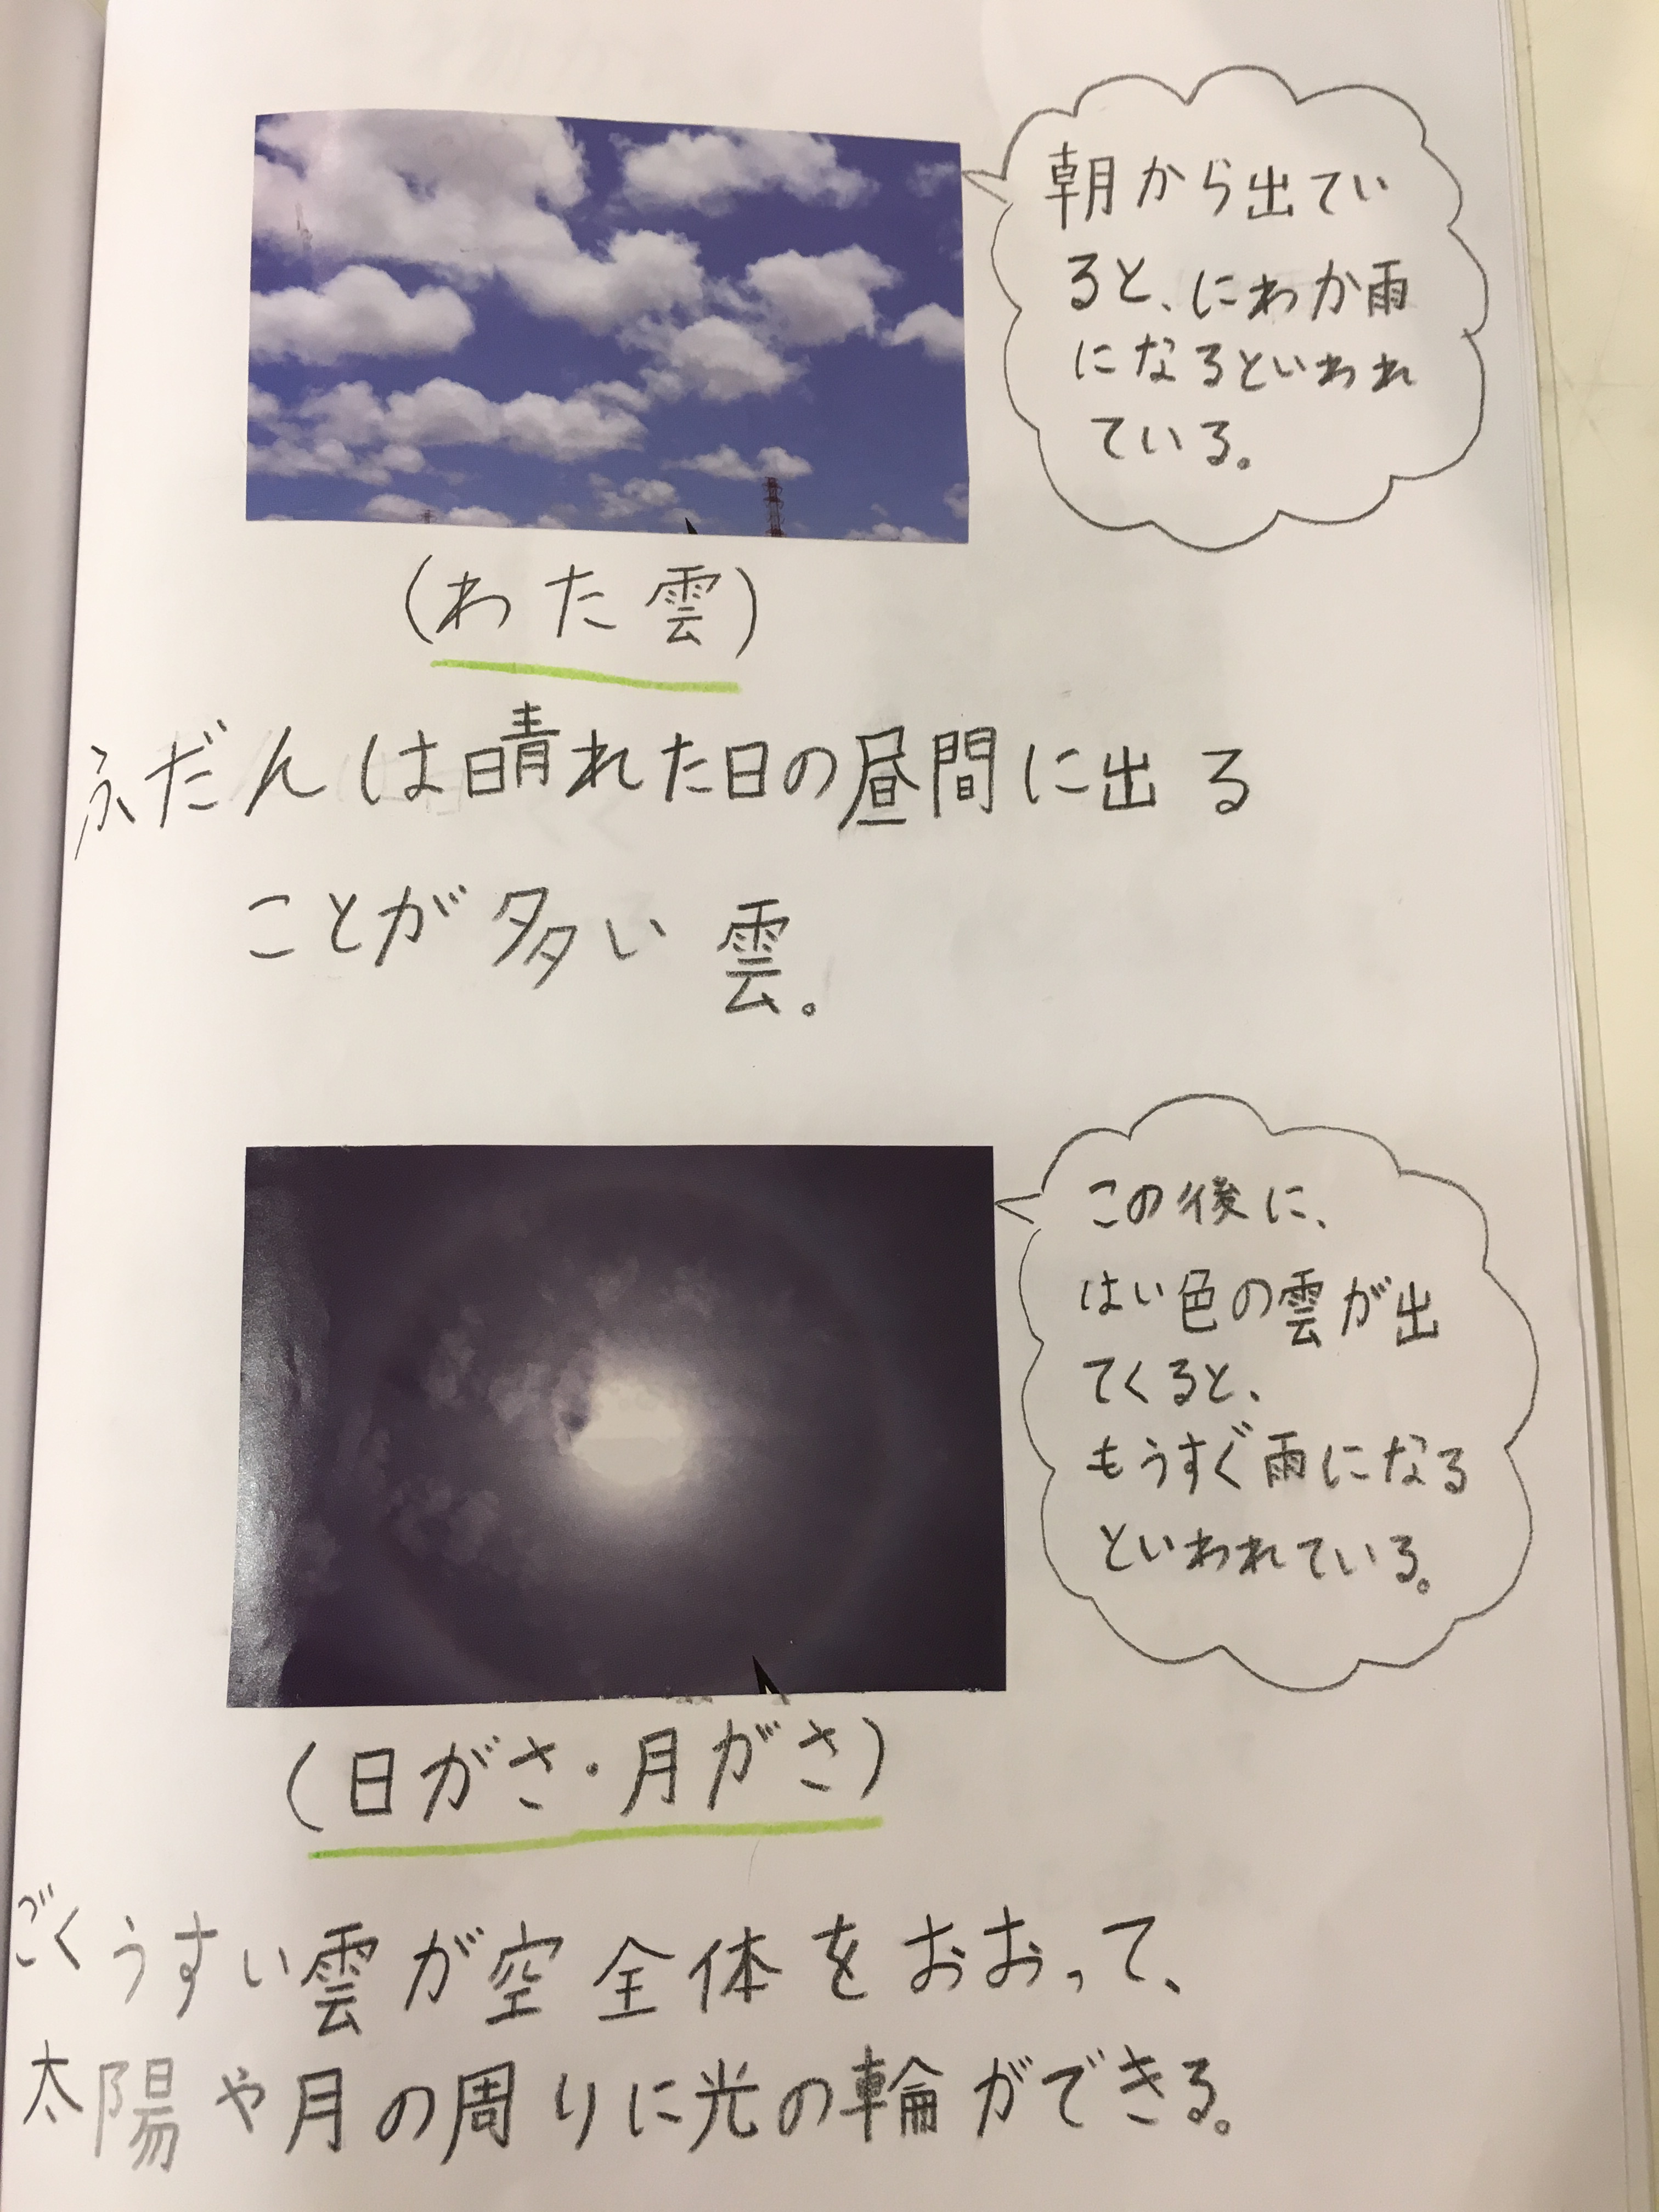 朝から出てい
ると、にわか雨
になるといわれ
ている。
(わた雲)
ふだんは晴れた日の昼間に出る
ことが多い雲。
この後に、
はい色の雲が出
てくると、
もうすぐ雨になる
といわれている。
(日がさ・月がさ)
ごくうすい雲が空全体をおおって、
太陽や月の周りに光の輪ができる。